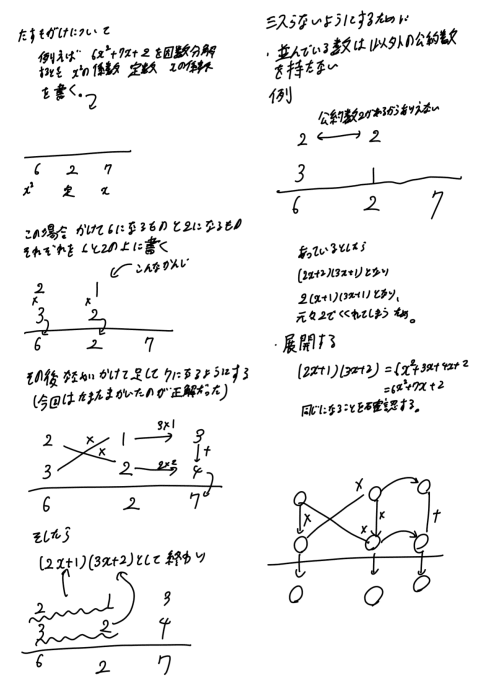 たすきがけについて
例えば 6x²+7x+2を因数分解
するとき x²の係数 定数 xの係数
を書く。
6 2 7
x² 定 x
この場合 かけて6になるものと2になるもの
それぞれを 6と2の上に書く
こんなかんじ
2 1
× ×
3 2
6 2 7
その後 ななめにかけて足して7になるようにする
(今回はたまたまかいたのが正解だった)
2 × 1 3×1 3
× +
3 2 2×2 4
6 2 7
そしたら
(2x+1)(3x+2)として終わり
2 1 3
3 2 4
6 2 7
ミスらないようにするために
・並んでいる数は1以外の公約数
を持たない
例
公約数2があるからありえない
2 2
3 1
6 2 7
あっているとしたら
(2x+2)(3x+1)となり
2(x+1)(3x+1)となり、
元々2でくくれてしまうため。
・展開する
(2x+1)(3x+2)=6x²+3x+4x+2
=6x²+7x+2
同じになることを確認する。
×
× × +
×